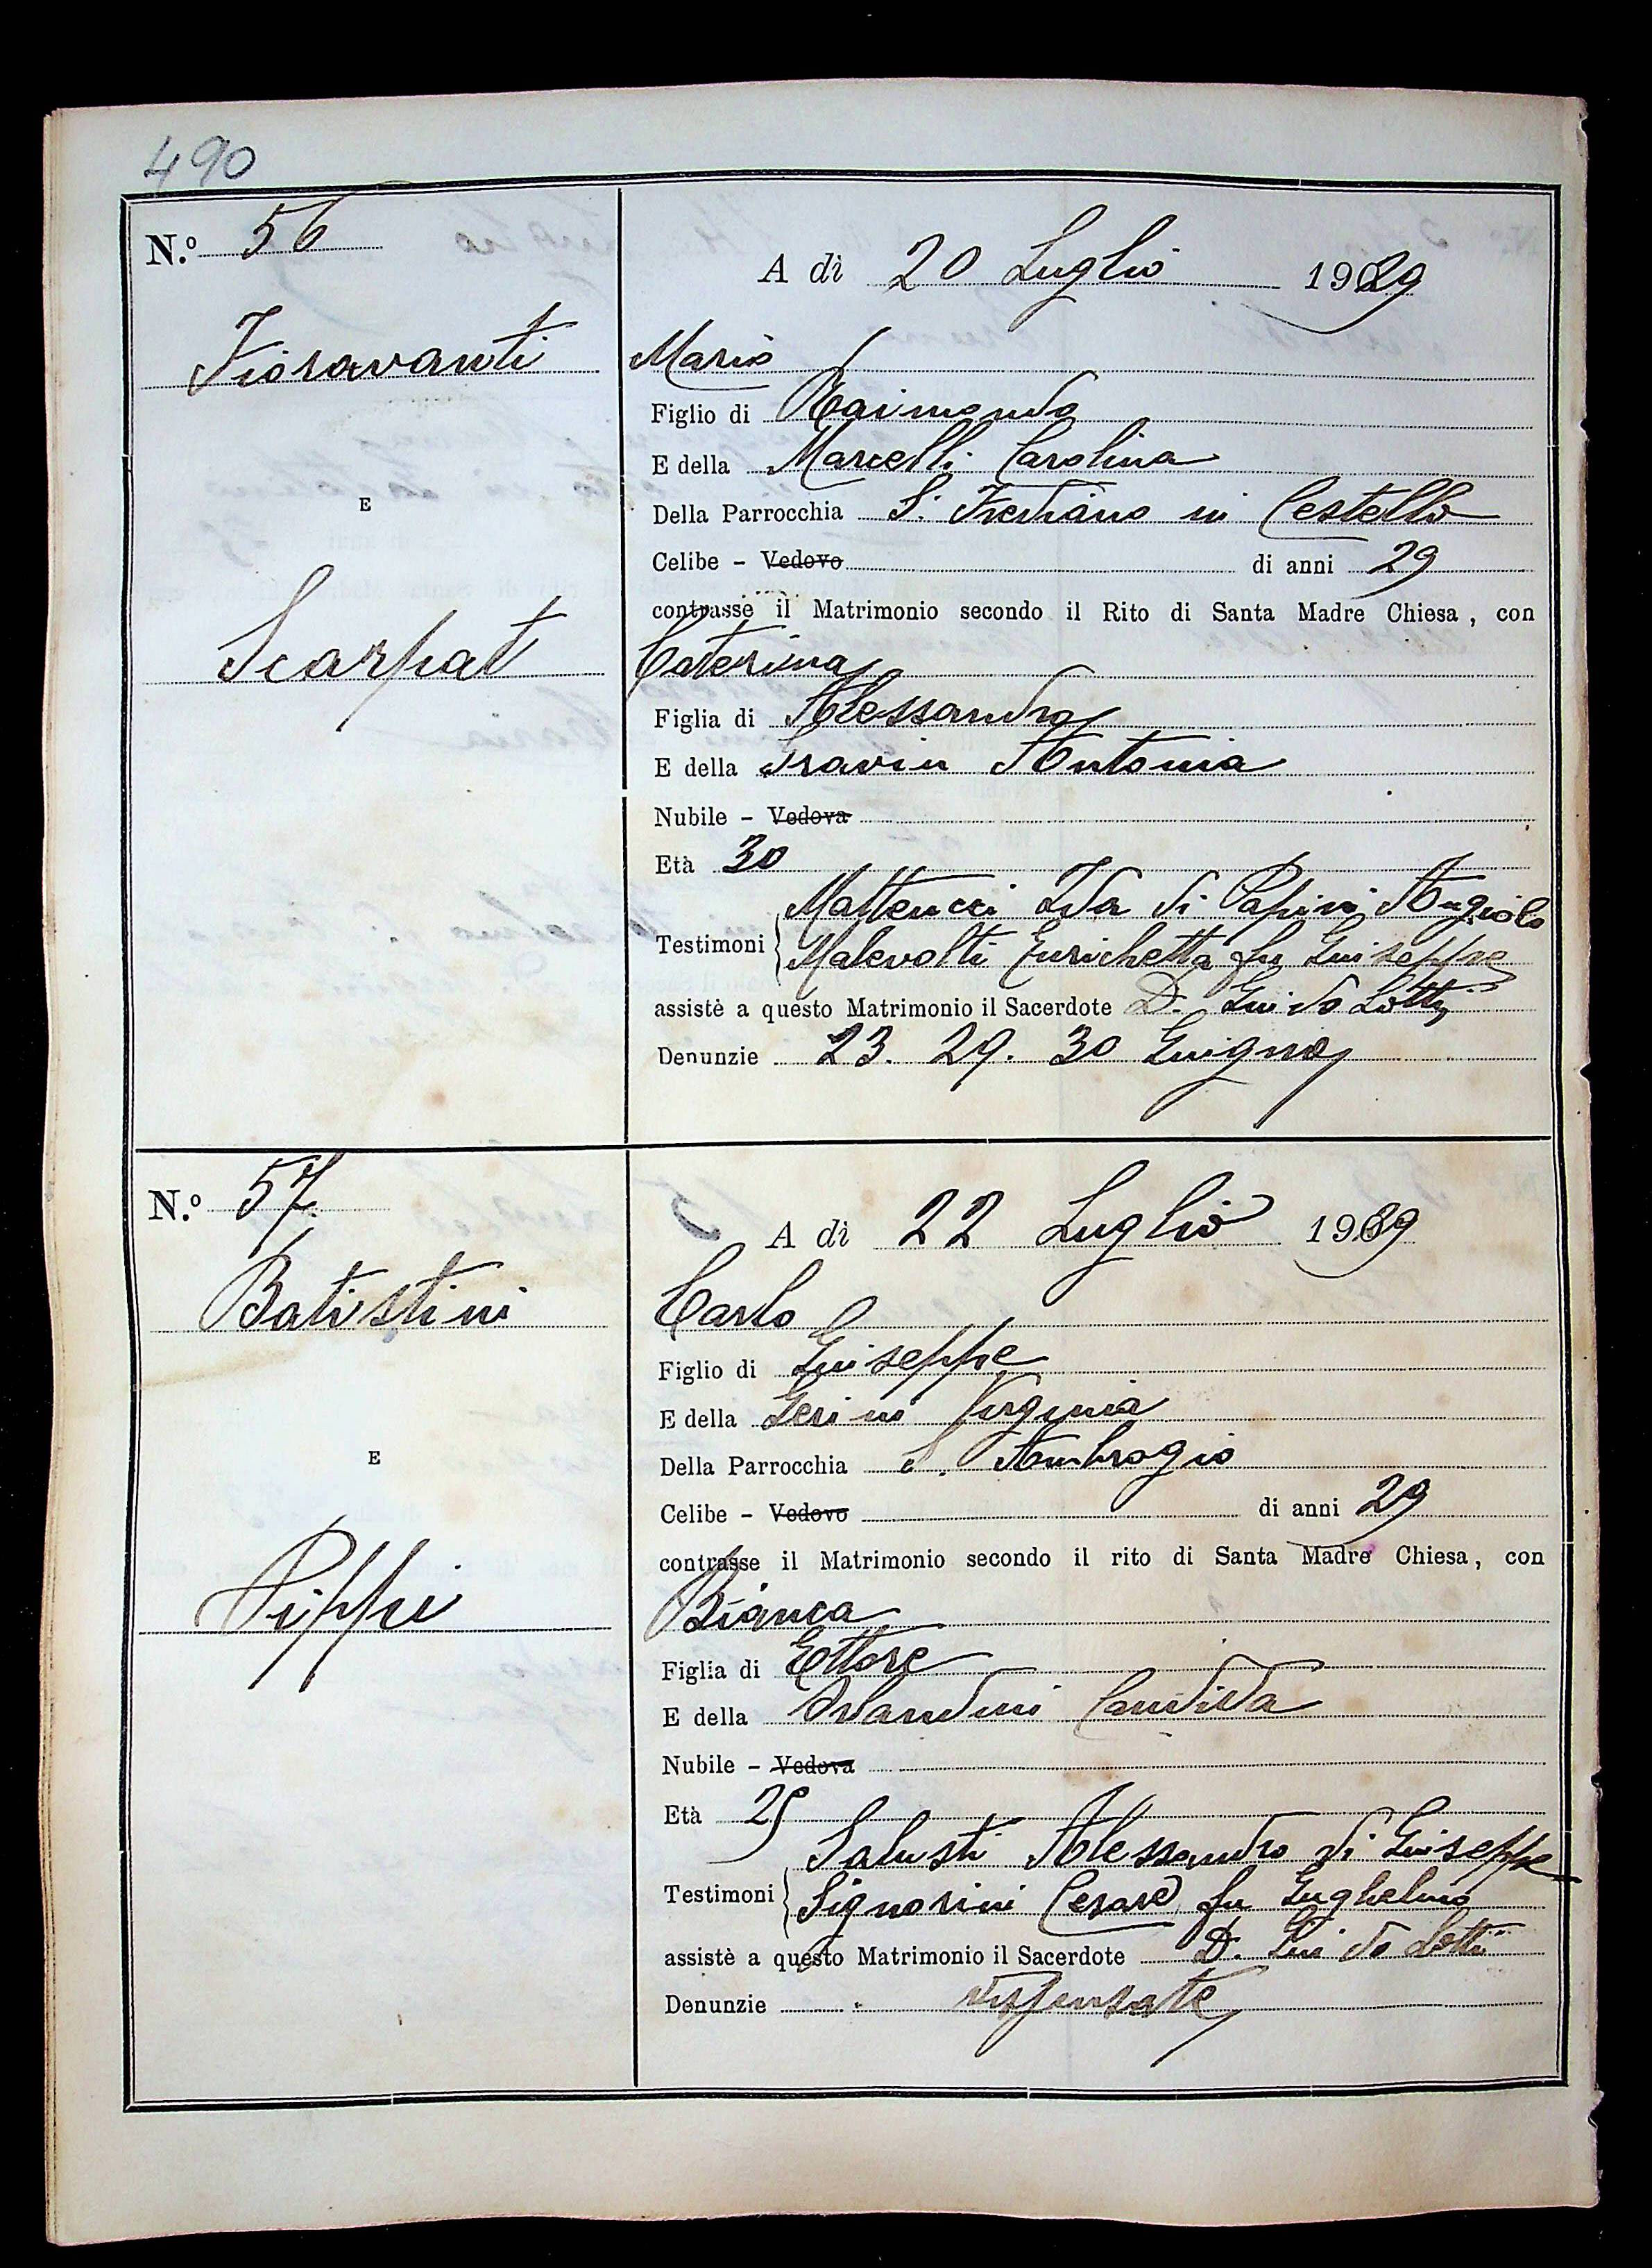 490
N.º 56
A dì 20 Luglio 1929
Fioravanti
Mario
Figlio di Raimondo
E della Marcelli Carolina
E
Della Parrocchia S. Frediano in Cestello
Celibe - Vedovo di anni 29
contrasse il Matrimonio secondo il Rito di Santa Madre Chiesa, con
Scarpat
Caterina
Figlia di Alessandro
E della Travin Antonia
Nubile - Vedova
Età 30
Matteucci Ida di Papini Angiolo
Testimoni
Malevolti Enrichetta fu Giuseppe
assistè a questo Matrimonio il Sacerdote D. Guido Lotti
Denunzie 23. 29. 30 Giugno
N.º 57
A dì 22 Luglio 1929
Batistini
Carlo
Figlio di Giuseppe
E della Gerini Virginia
E
Della Parrocchia S. Ambrogio
Celibe - Vedovo di anni 29
contrasse il Matrimonio secondo il rito di Santa Madre Chiesa, con
Pippi
Bianca
Figlia di Ettore
E della Orlandini Candida
Nubile - Vedova
Età 25
Salusti Alessandro di Giuseppe
Testimoni
Signorini Cesare fu Guglielmo
assistè a questo Matrimonio il Sacerdote D. Guido Lotti
Denunzie dispensate